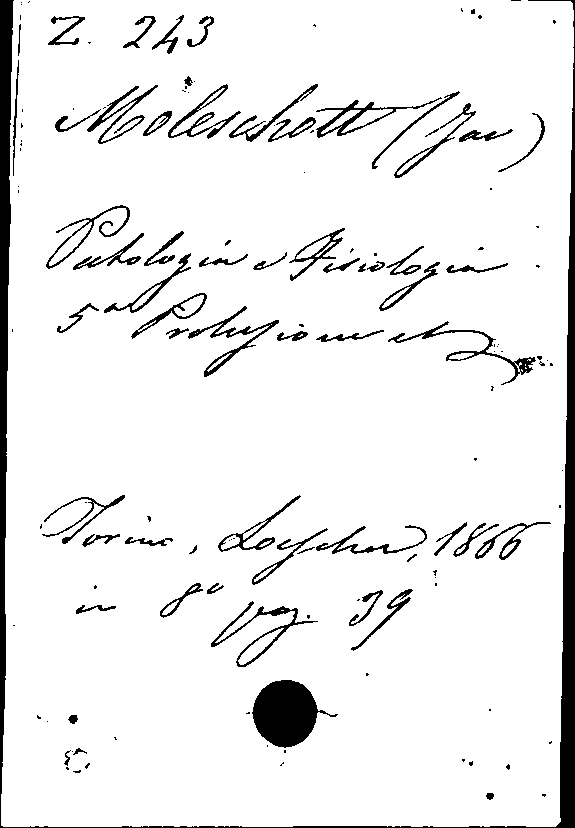 Z. 243
Moleschott (Jac)
Patologia e Fisiologia
5a Prolusione etc
Torino, Loescher, 1866
in 8o pag. 39